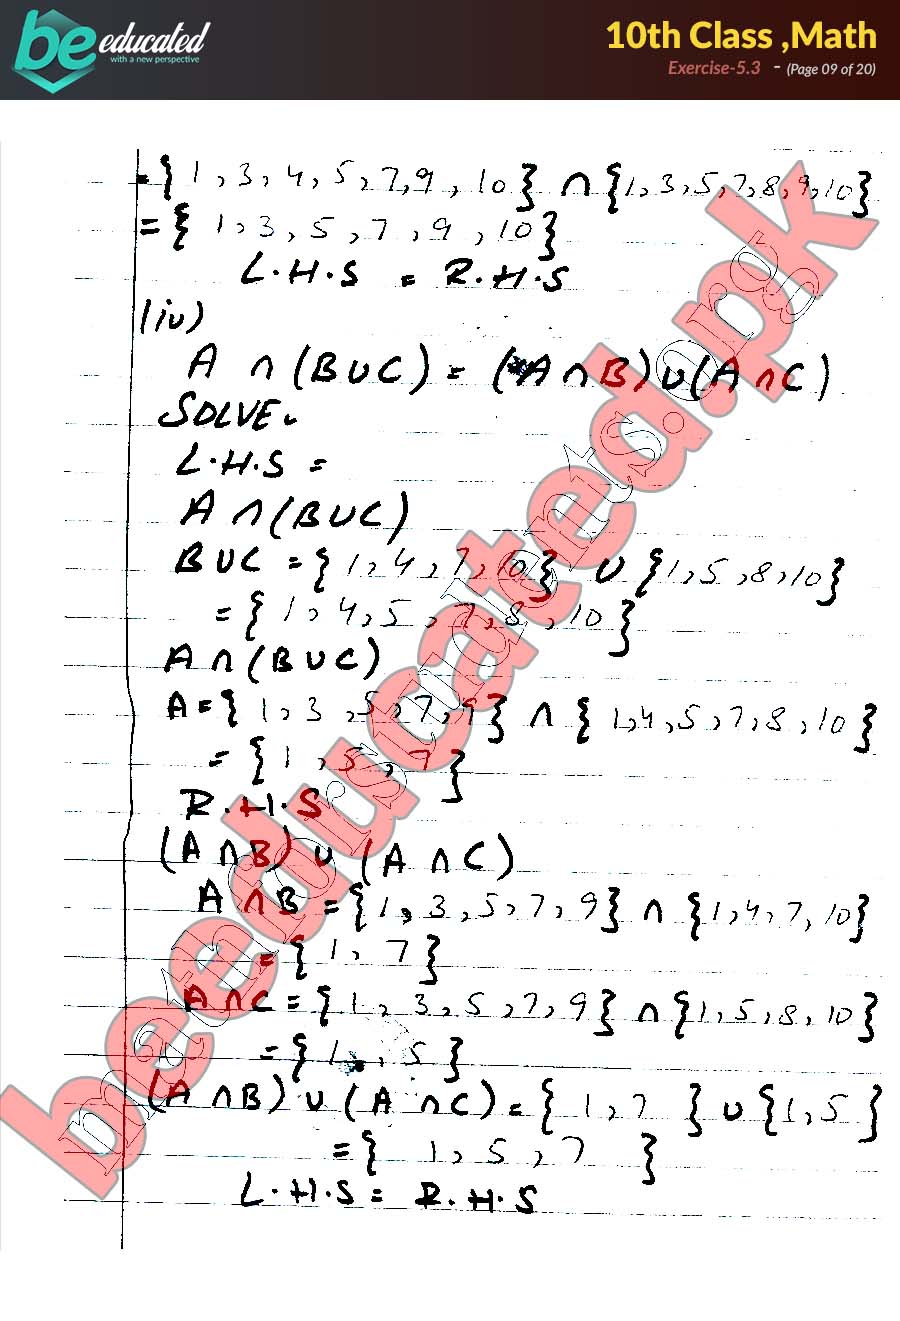 be educated
with a new perspective
10th Class ,Math
Exercise-5.3 - (Page 09 of 20)
= { 1 , 3 , 4 , 5 , 7 , 9 , 10 } ∩ { 1 , 3 , 5 , 7 , 8 , 9 , 10 }
= { 1 , 3 , 5 , 7 , 9 , 10 }
L.H.S = R.H.S
(iv)
A ∩ (B ∪ C) = (A ∩ B) ∪ (A ∩ C)
SOLVE.
L.H.S =
A ∩ (B ∪ C)
B ∪ C = { 1 , 4 , 7 , 10 } ∪ { 1 , 5 , 8 , 10 }
= { 1 , 4 , 5 , 7 , 8 , 10 }
A ∩ (B ∪ C)
A = { 1 , 3 , 5 , 7 , 9 } ∩ { 1 , 4 , 5 , 7 , 8 , 10 }
= { 1 , 5 , 7 }
R.H.S
(A ∩ B) ∪ (A ∩ C)
A ∩ B = { 1 , 3 , 5 , 7 , 9 } ∩ { 1 , 4 , 7 , 10 }
= { 1 , 7 }
A ∩ C = { 1 , 3 , 5 , 7 , 9 } ∩ { 1 , 5 , 8 , 10 }
= { 1 , 5 }
(A ∩ B) ∪ (A ∩ C) = { 1 , 7 } ∪ { 1 , 5 }
= { 1 , 5 , 7 }
L.H.S = R.H.S
beeducated.pk